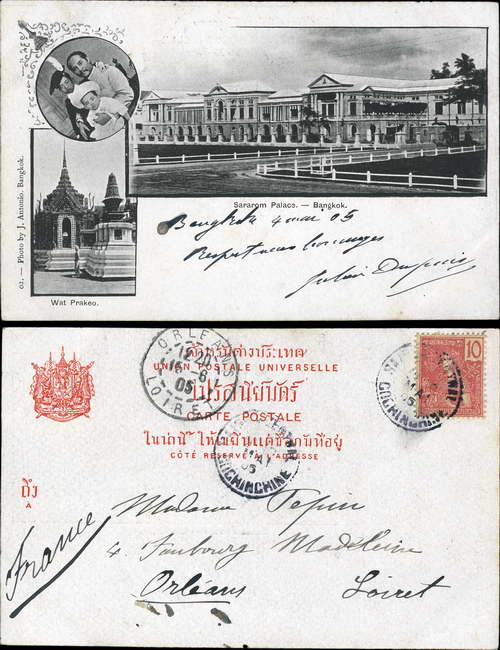 02. — Photo by J. Antonio. Bangkok.
Sararom Palace. — Bangkok.
Wat Prakeo.
Bangkok 4 mai 05
Respectueux hommages
ORLEANS
12 20
16 -6
05
LOIRET
ด้านรนีต่างประเทศ
UNION POSTALE UNIVERSELLE
ไปรสนิยบัตร์
CARTE POSTALE
ในน่านี้ ให้เขียนแต่ชื่อแลที่อยู่
CÔTÉ RÉSERVÉ A L'ADRESSE
10
MAI
05
COCHINCHINE
MAI
05
COCHINCHINE
ถึง
A
Madame Pepin
4 Faubourg Madeleine
Orléans Loiret
France